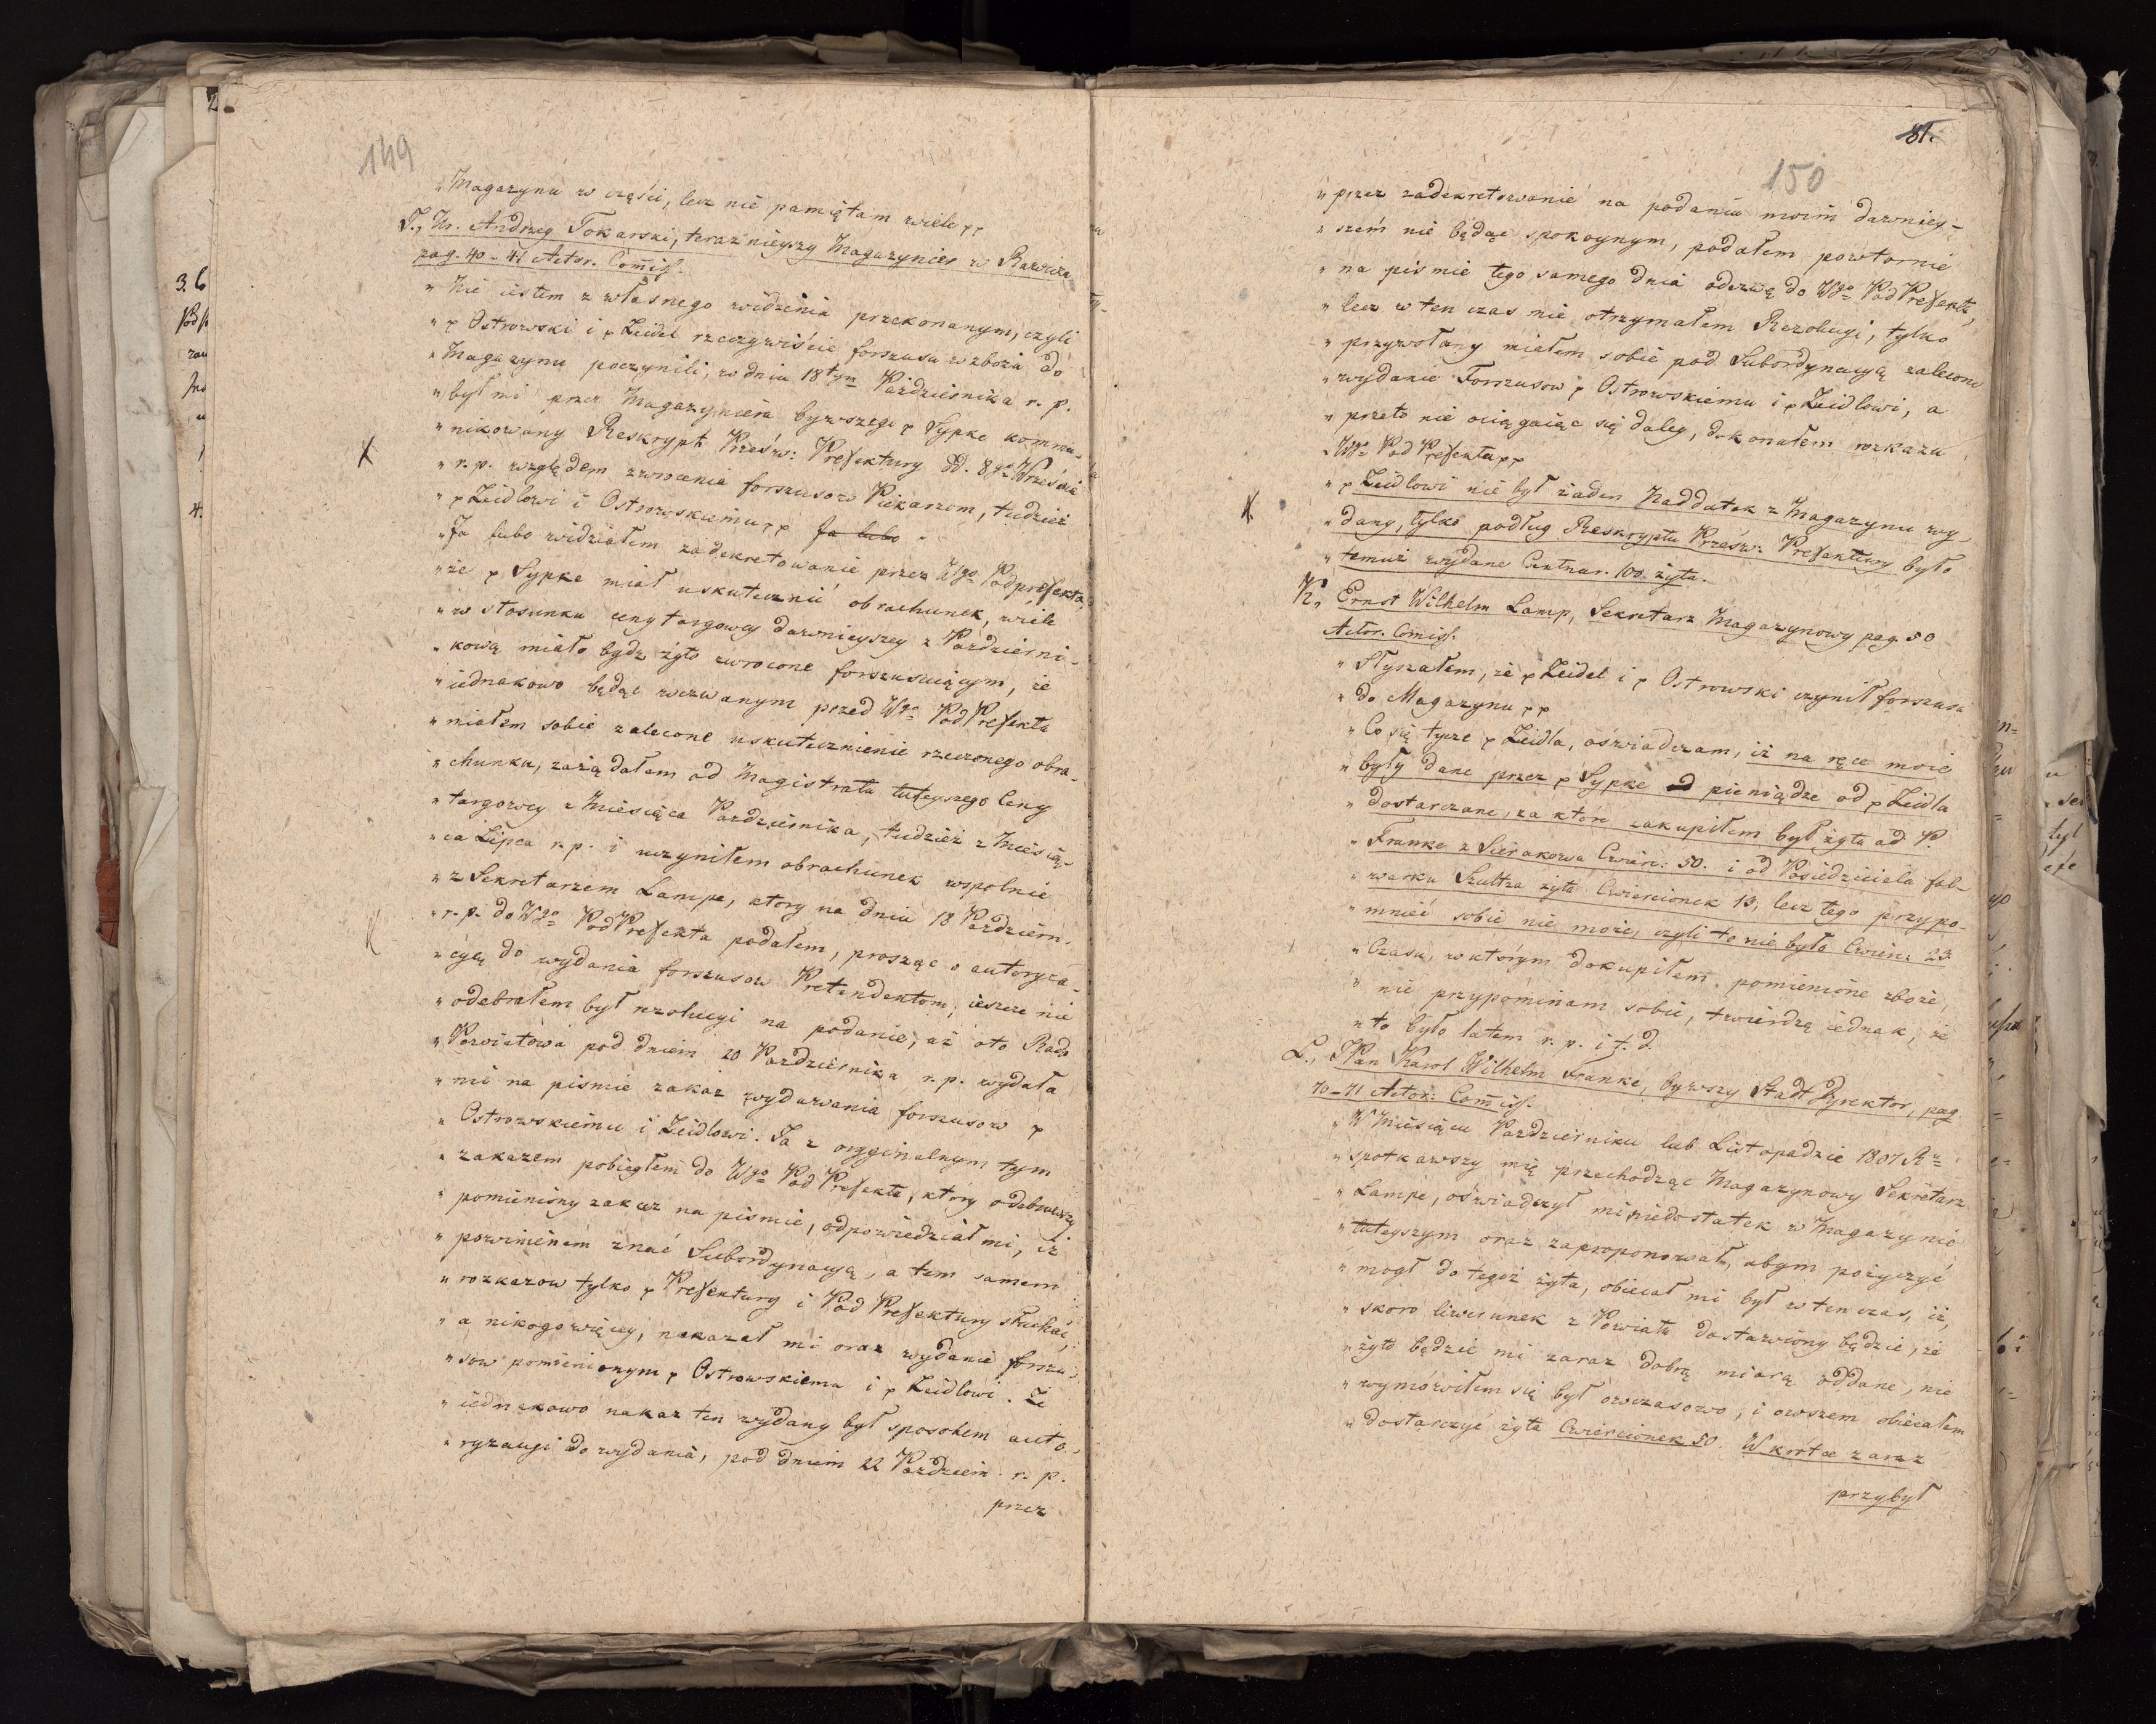 149
„ Magazynu w części, lecz nie pamiętam wiele pp
J., Ur. Andrzey Tokarski, teraznieyszy Magazynier w Rawiczu
pag. 40-41 Actor. Comiss.
„ Nie iestem z własnego widzenia przekonanym, czyli
„ p Ostrowski i p Zeidel rzeczywiście forszusa w zbożu do
„ Magazynu poczynili, w dniu 18tym Paździeśnika r. p.
„ był mi przez Magazyniera bywszego p Sypke kommu-
„ nikowany Reskrypt Prześw: Prefektury dd. 8go Września
„ r. p. względem zwrocenia forszusow Piekarzom, tudzież
„ p Zeidlowi i Ostrowskiemu pp Ja lubo
„ Ja lubo widziałem zadekretowanie przez Wgo Podprefekta,
„ że p Sypke miał uskutecznić obrachunek, wiele
„ w stosunku ceny targowey dawnieyszey z Paździeśni-
„ kową miało bydz żyto zwrocone forszusuiącym, że
„ iednakowo będąc wezwanym przed Wgo PodPrefekta
„ miałem sobie zalecone uskutecznienie rzeczonego obra-
„ chunku, zażądałem od Magistratu tuteyszego Ceny
„ targowey z Miesiąca Paździeśnika, tudzież z Miesią-
„ ca Lipca r. p. i uczyniłem obrachunek wspolnie
„ z Sekretarzem Lampe, ktory na dniu 18 Paździeśn.
„ r. p. do Wgo PodPrefekta podałem, prosząc o autoryza-
„ cyą do wydania forszusow Pretendentom; ieszcze nie
„ odebrałem był rezolucyi na podanie, aż oto Rada
„ Powiatowa pod dniem 20 Paździeśnika r. p. wydała
„ mi na pismie zakaz wydawania forszusow p
„ Ostrowskiemu i Zeidlowi. Ja z oryginalnym tym
„ zakazem pobiegłem do Wgo PodPrefekta, ktory odebrawszy
„ pomieniony zakaz na pismie, odpowiedział mi, iż
„ powinienem znać Subordynacyą, a tem samem
„ rozkazow tylko p Prefektury i PodPrefektury słuchać,
„ a nikogo więcey, nakazał mi oraz wydanie forszu-
„ sow pomienionym p Ostrowskiemu i p Zeidlowi. Że
„ iednakowo nakaz ten wydany był sposobem auto-
„ ryzacyi do wydania, pod dniem 22 Paździeśn. r. p.
przez
81.
150
„ przez zadekretowanie na podaniu moim dawniey-
„ szem nie będąc spokoynym, podałem powtornie
„ na pismie tego samego dnia odezwę do Wgo PodPrefekta,
„ lecz w ten czas nie otrzymałem Rezolucyi, tylko
„ przywołany miałem sobie pod Subordynacyą zalecone
„ wydanie Forszusow p Ostrowskiemu i p Zeidlowi, a
„ przeto nie ociągaiąc się daley, dokonałem rozkazu
„ Wgo PodPrefekta pp
„ p Zeidlowi nie był żaden Naddatek z Magazynu wy-
„ dany, tylko podług Reskryptu Prześw: Prefektury było
„ temuż wydane Centnar. 100. żyta.
K., Ernst Wilhelm Lamp, Sekretarz Magazynowy pag. 50
Actor. Comiss.
„ Słyszałem, że p Zeidel i p Ostrowski czynił forszusa
„ do Magazynu pp
„ Co się tycze p Zeidla, oświadczam, iż na ręce moie
„ były dane przez p Sypke pieniądze od p Zeidla
„ dostarczane, za które zakupiłem był żyta od P.
„ Franke z Sierakowa Cwierc: 50. i od Posiedziciela fol-
„ warku Szultza żyta Cwierciónek 13, lecz tego przypo-
„ mnieć sobie nie może, czyli to nie było Cwierc: 23.
„ Czasu, w którym dokupiłem pomienione zboże,
„ nie przypominam sobie, twierdzę iednak, że
„ to było latem r. p. i t. d.
L., Pan Karol Wilhelm Franke, bywszy Stadt Dyrektor, pag.
70-71 Actor: Comiss.
„ W Miesiącu Paździeśniku lub Listopadzie 1807 Ru
„ spotkawszy mię przechodząc Magazynowy Sekretarz
„ Lampe, oświadczył mi niedostatek w Magazynie
„ tuteyszym oraz zaproponował, abym pożyczyć
„ mogł do tegoż żyta, obiecał mi był w ten czas, iż,
„ skoro liwerunek z Powiatu dostawiony będzie, że
„ żyto będzie mi zaraz dobrą miarą oddane, nie
„ wymówiłem się był owczasowo, i owszem obiecałem
„ dostarczyć żyta Cwierciónek 50. W krótce zaraz
przybył